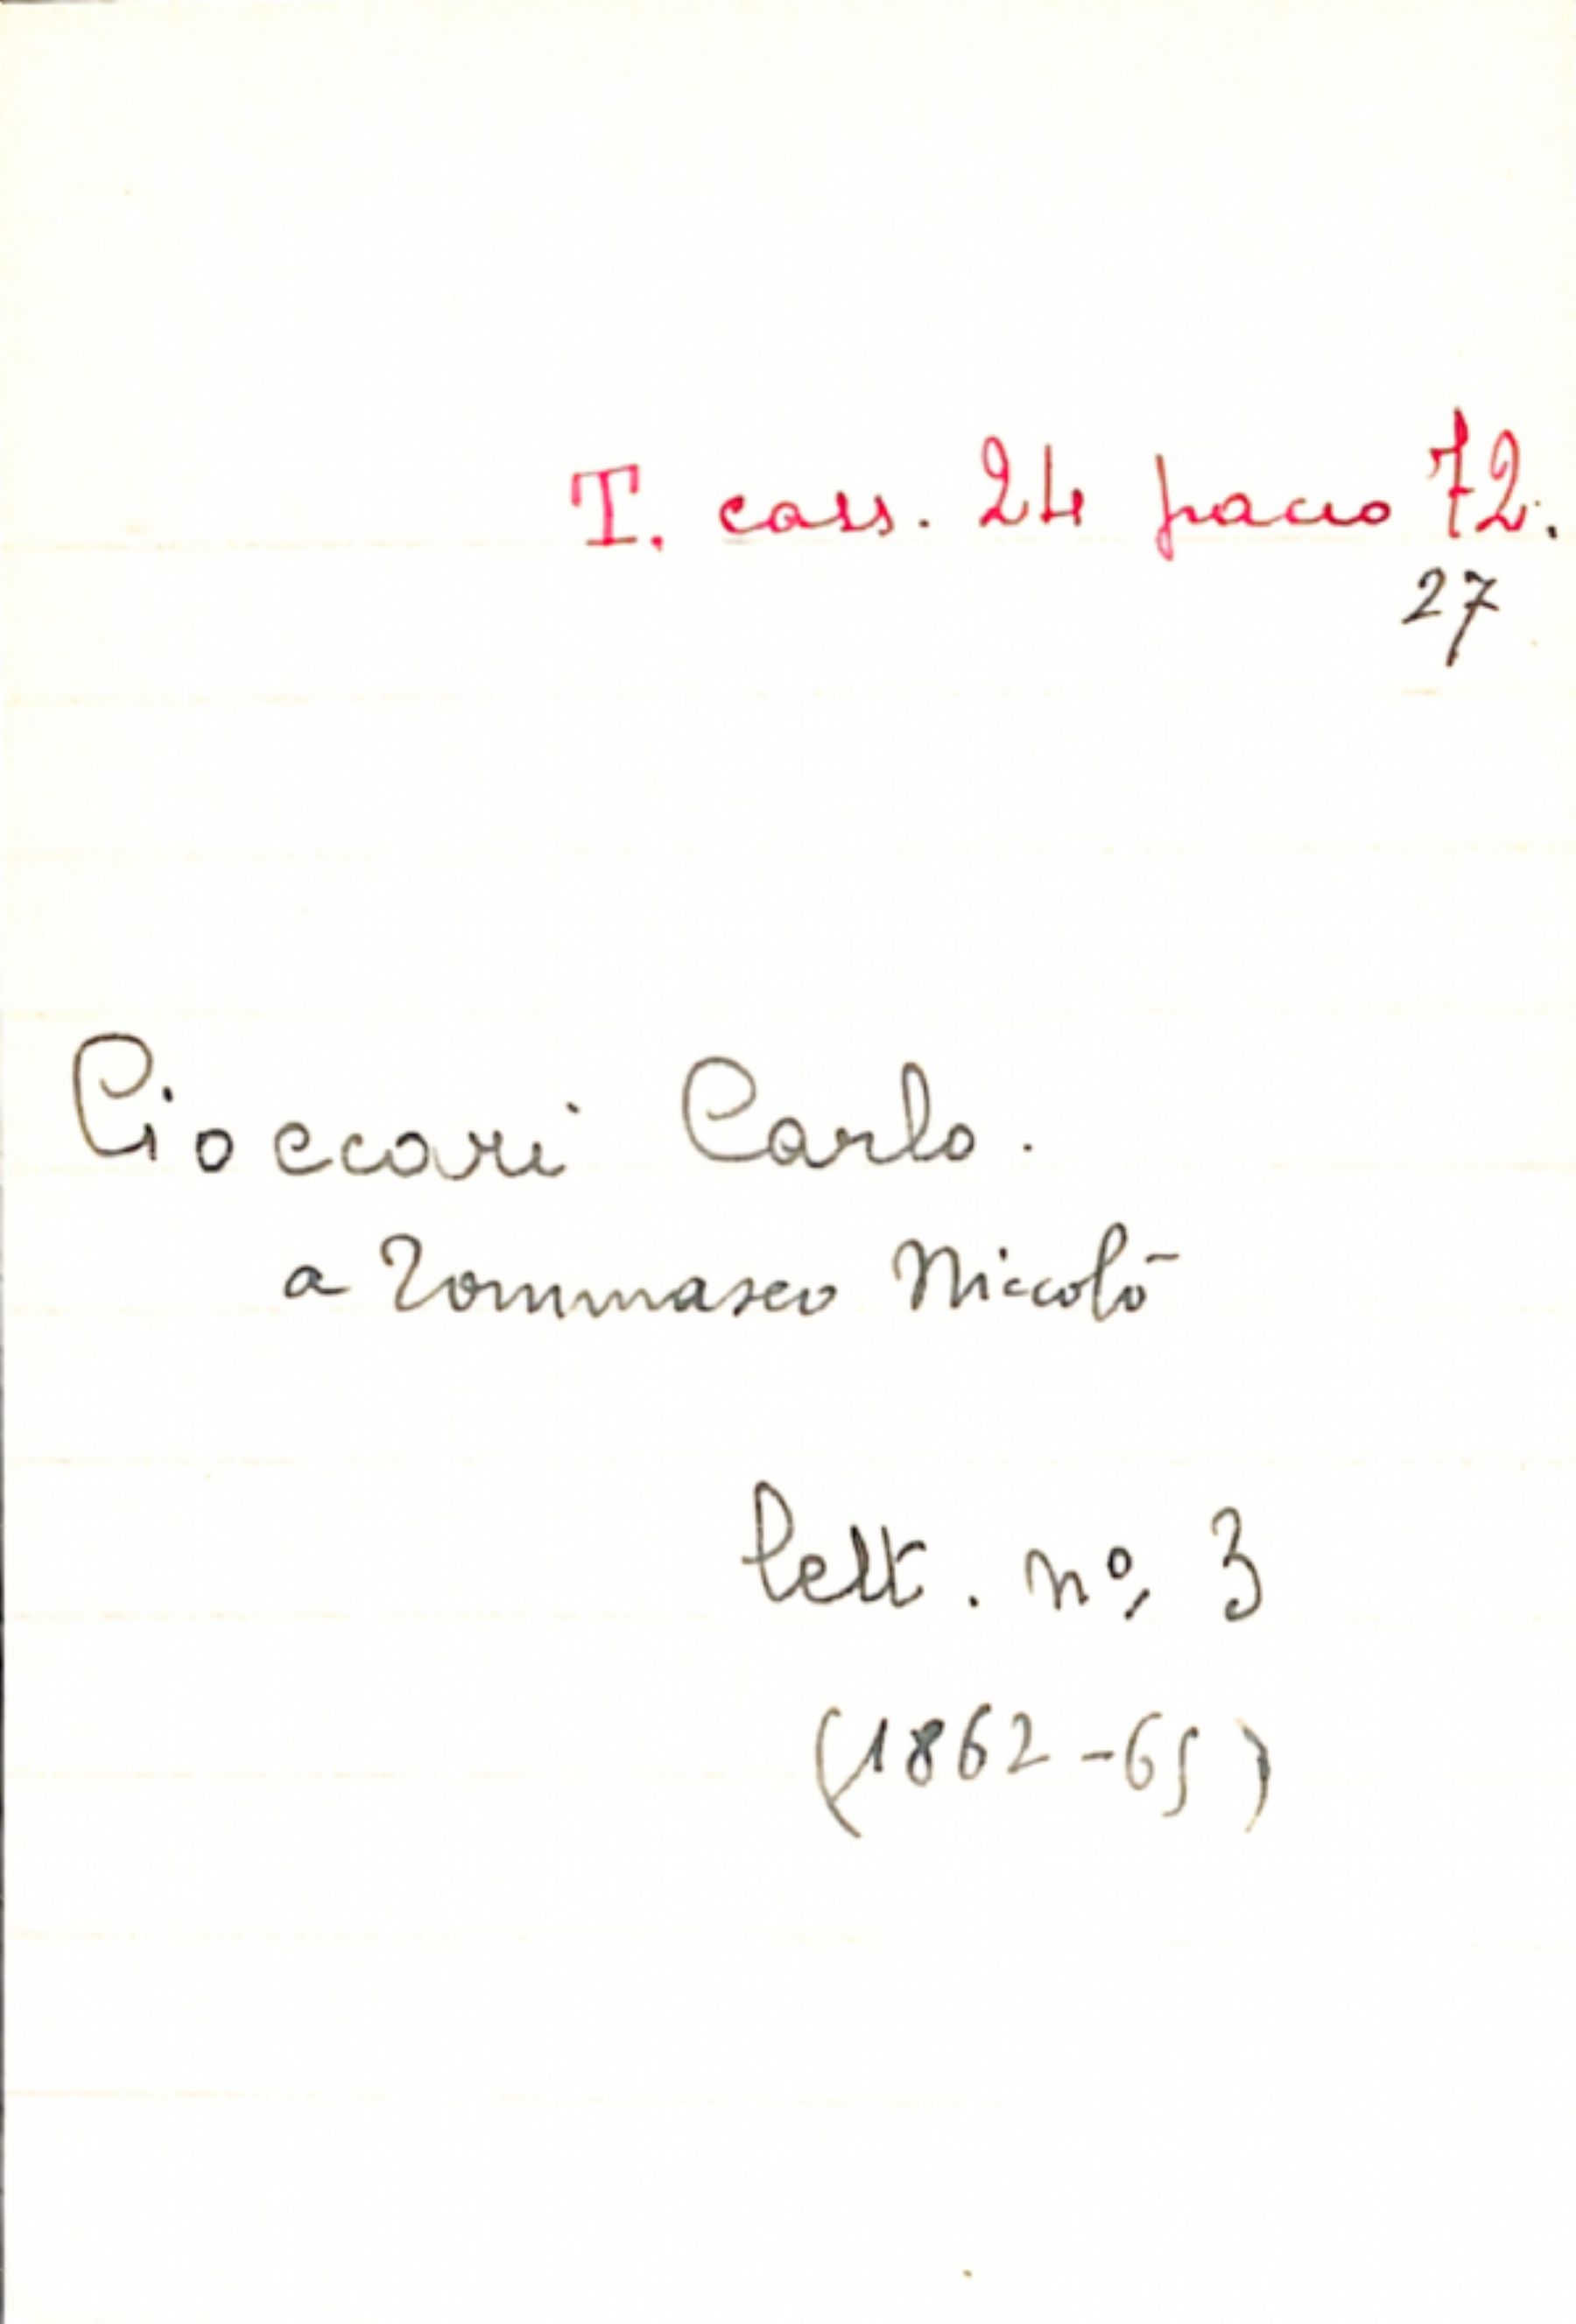 T. cass. 24 pacco 72.
27
Cioccari Carlo.
a Tommaseo Niccolò
lett. nº. 3
(1862-65)